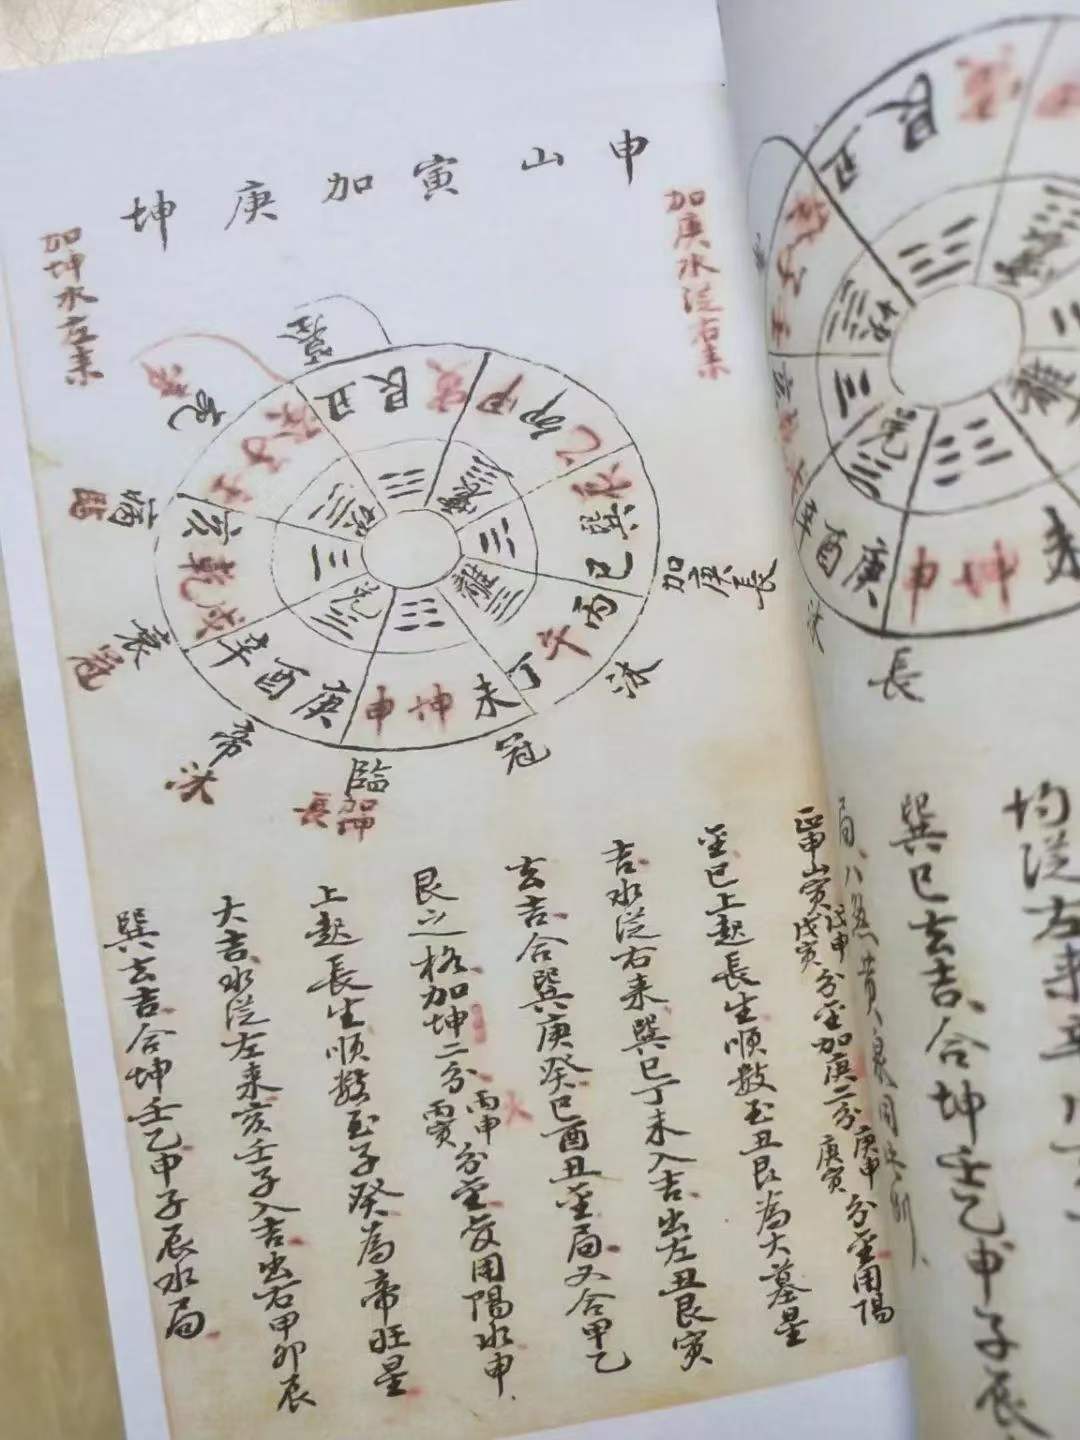 申山寅加庚坤
加庚水從右来
加坤水左来
墓
艮丑
寅
甲卯乙
辰巽巳
丙午丁
未坤申
庚酉辛
戌乾亥
壬子癸
兌
加庚長
沐
冠
臨
加坤
長
帝
沐
衰
冠
病
臨
死
正申山寅戊申戊寅分金加庚二分庚申庚寅分金用陽
金巳上起長生順數至丑艮為大墓星
吉水從右来巽巳丁未入吉出左丑艮寅
去吉合巽庚癸巳酉丑金局又合甲乙
艮之格加坤二分丙申丙寅分金爻用陽水申
上起長生順數至子癸為帝旺星
大吉水從左来亥壬子入吉出右甲卯辰
巽去吉合坤壬乙申子辰水局
艮
丑
亥
辛酉庚
申坤未
沐
長
均從左来
巽巳去吉合坤壬乙申子辰